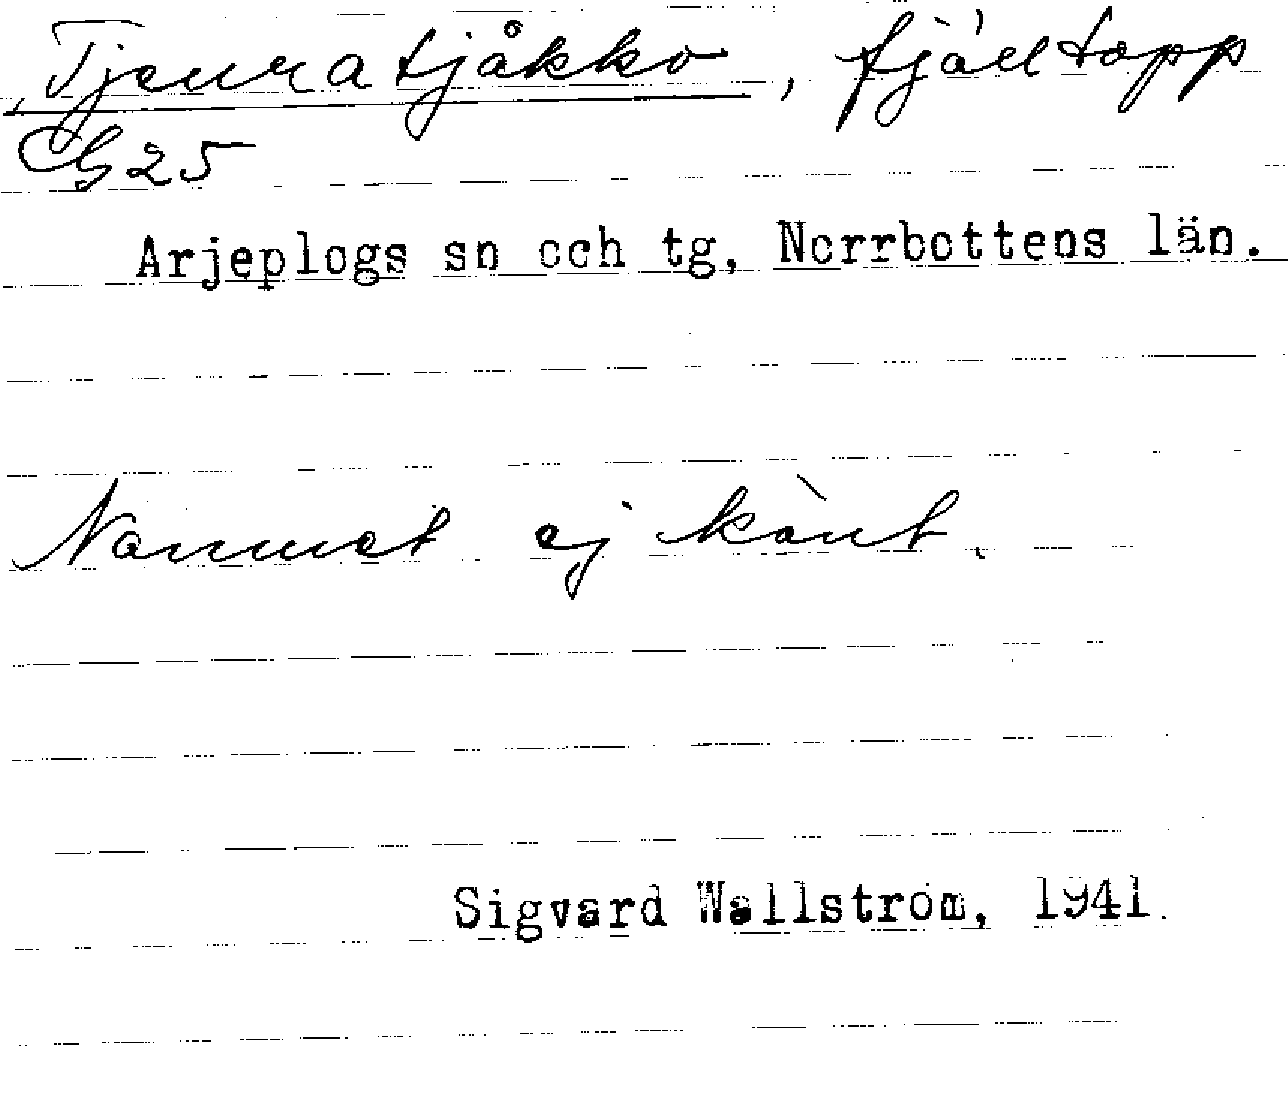 Tjeuratjåkko, fjälltopp
G25
Arjeplogs sn och tg, Norrbottens län.
Namnet ej känt.
Sigvard Wallström, 1941.